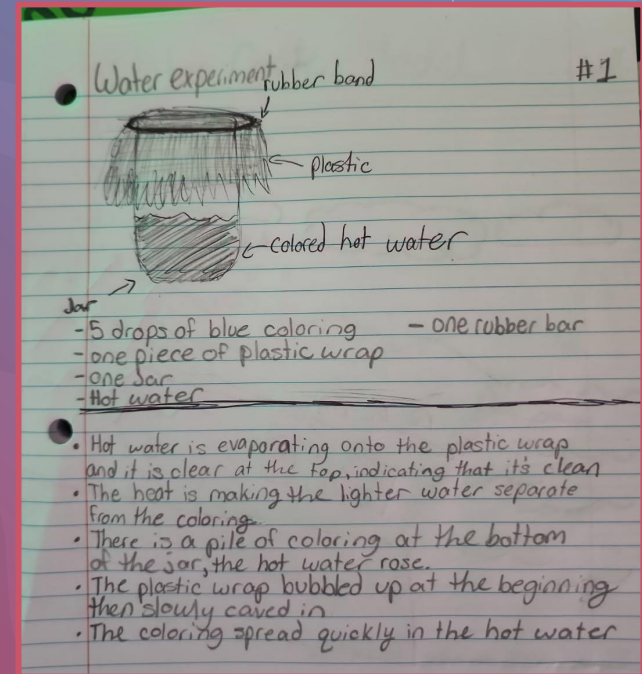 Water experiment
#1
rubber band
plastic
colored hot water
Jar
-5 drops of blue coloring - one rubber bar
-one piece of plastic wrap
-one Jar
-Hot water
• Hot water is evaporating onto the plastic wrap
and it is clear at the top, indicating that it's clean
• The heat is making the lighter water separate
from the coloring.
• There is a pile of coloring at the bottom
of the jar, the hot water rose.
• The plastic wrap bubbled up at the beginning
then slowly caved in
• The coloring spread quickly in the hot water